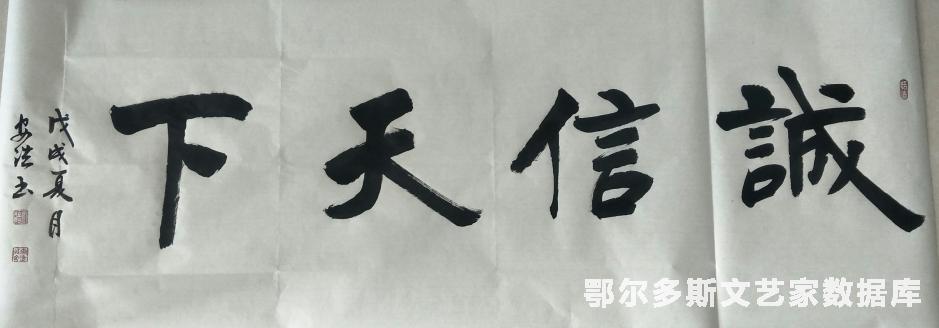 誠信天下
戊戌夏月
安洪书
鄂尔多斯文艺家数据库